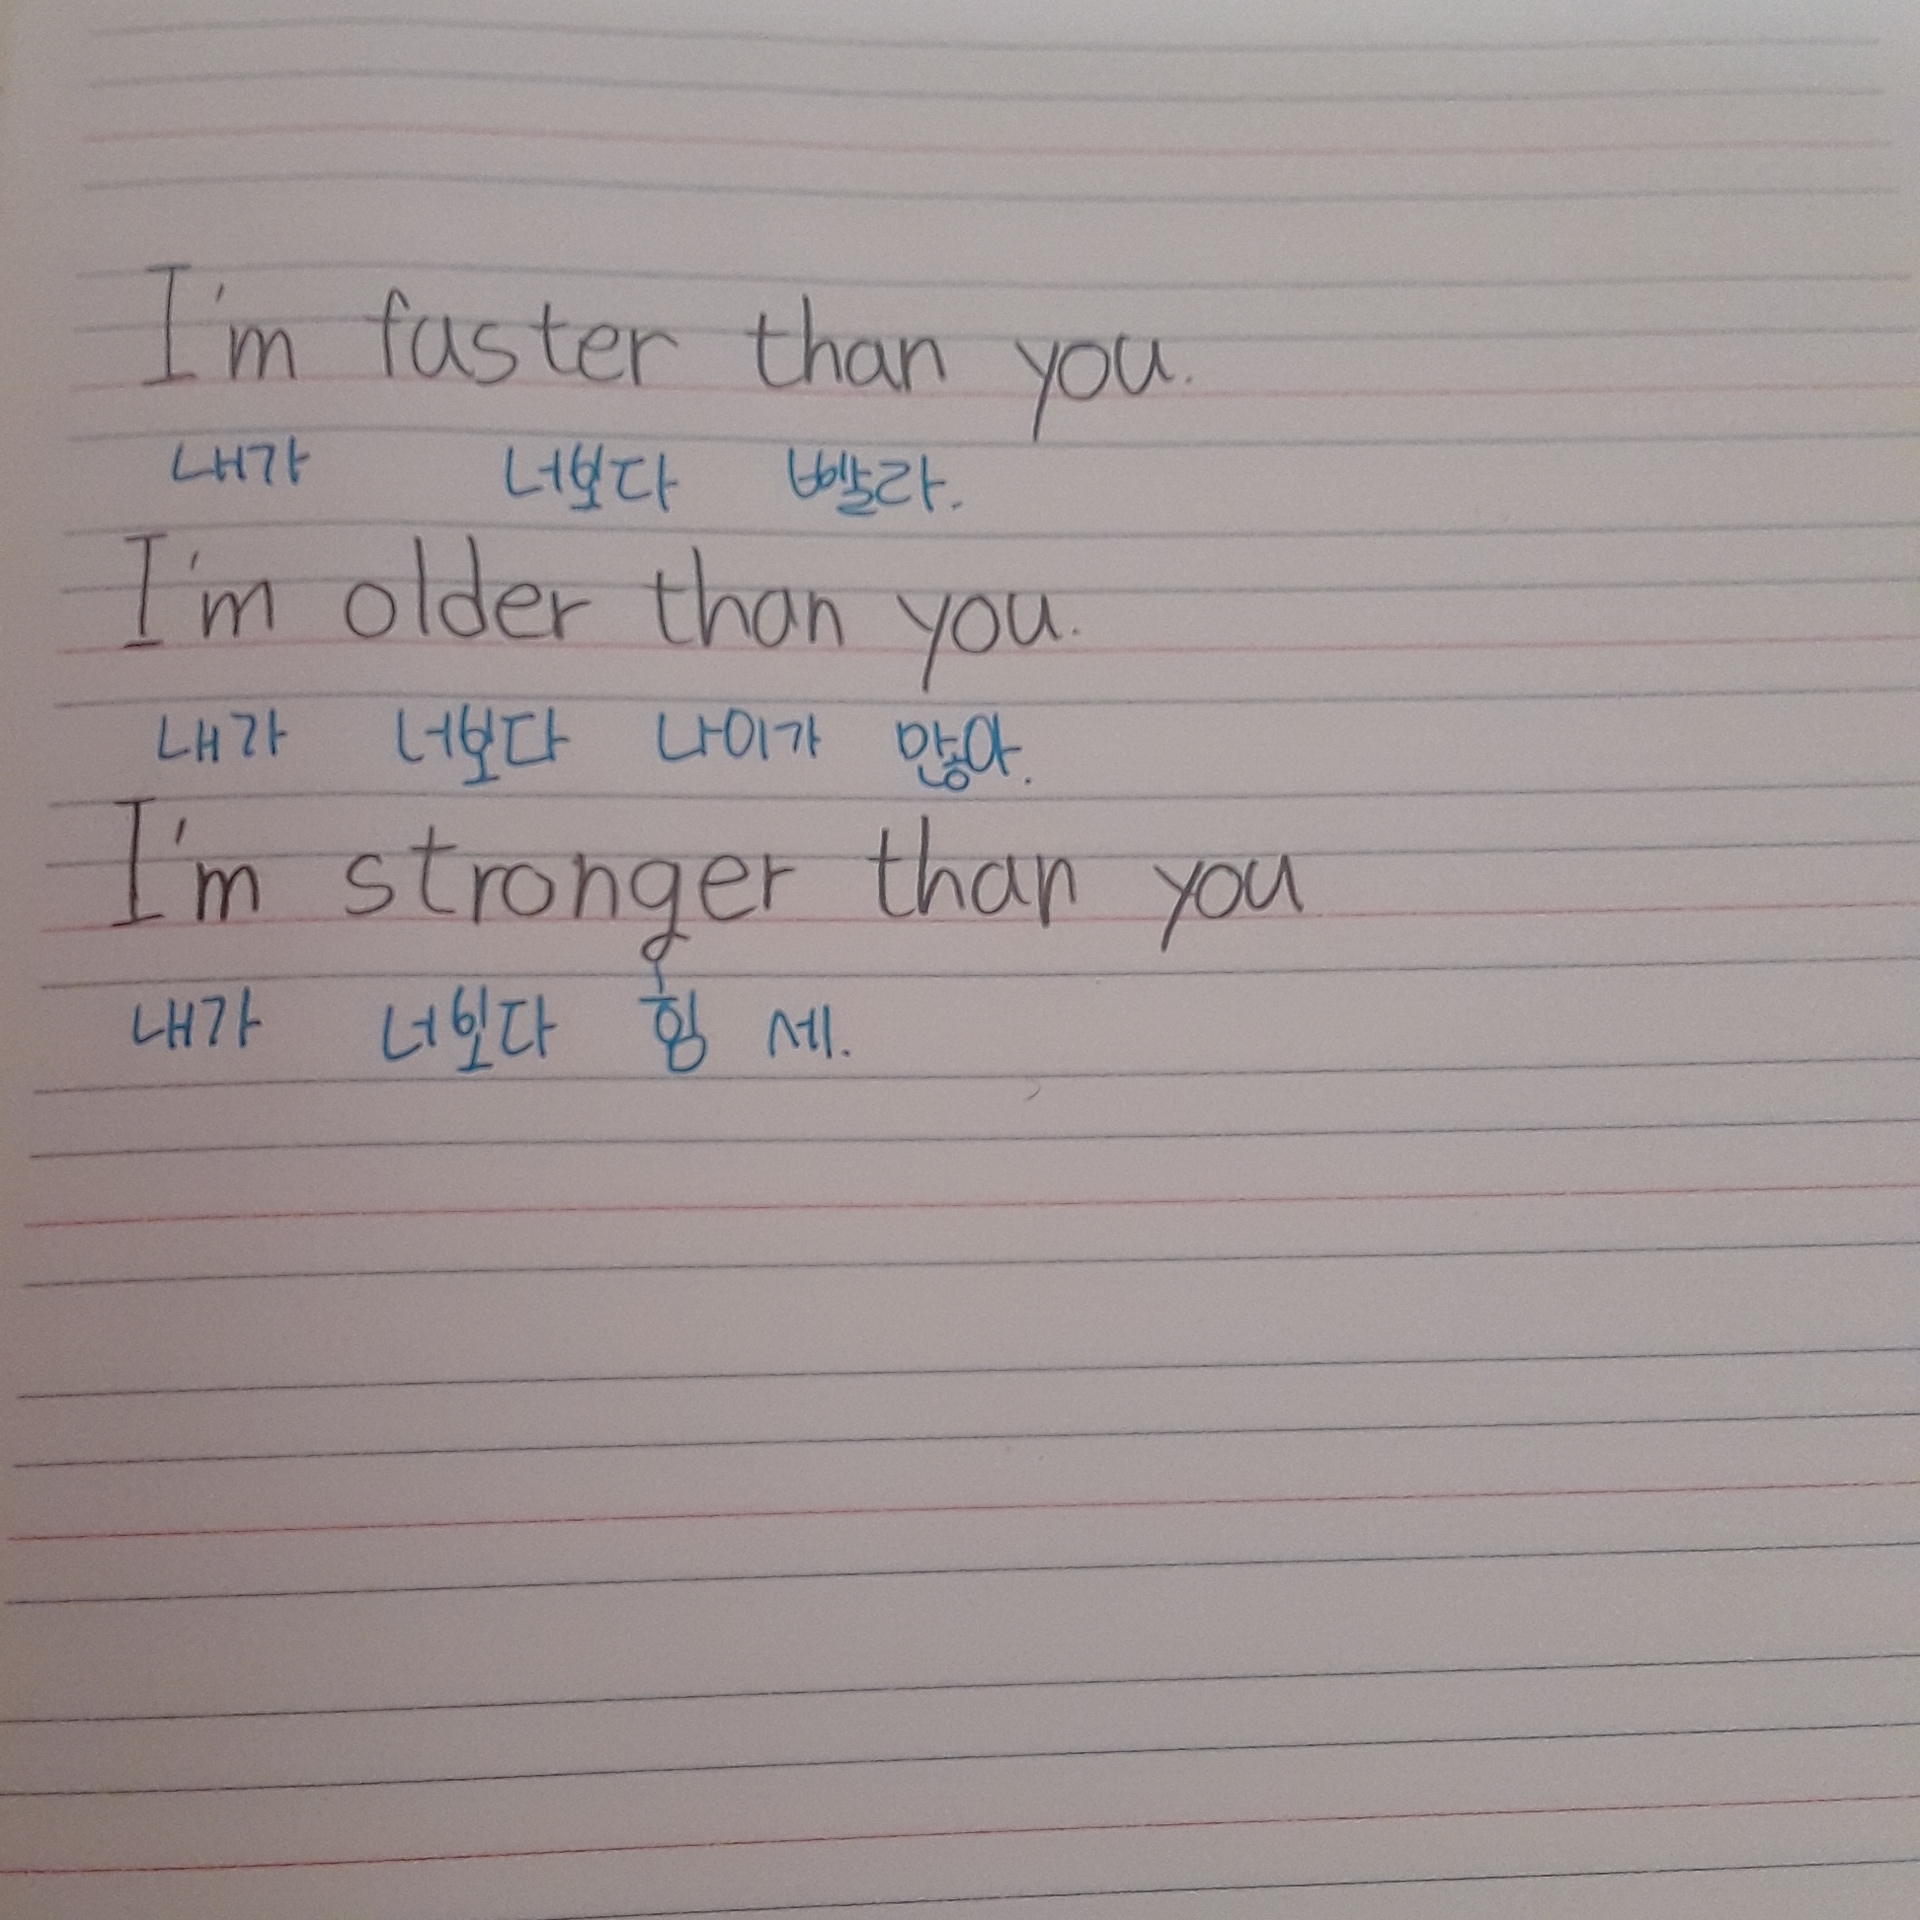 I'm faster than you.
내가 너보다 빨라.
I'm older than you.
내가 너보다 나이가 많아.
I'm stronger than you
내가 너보다 힘 세.